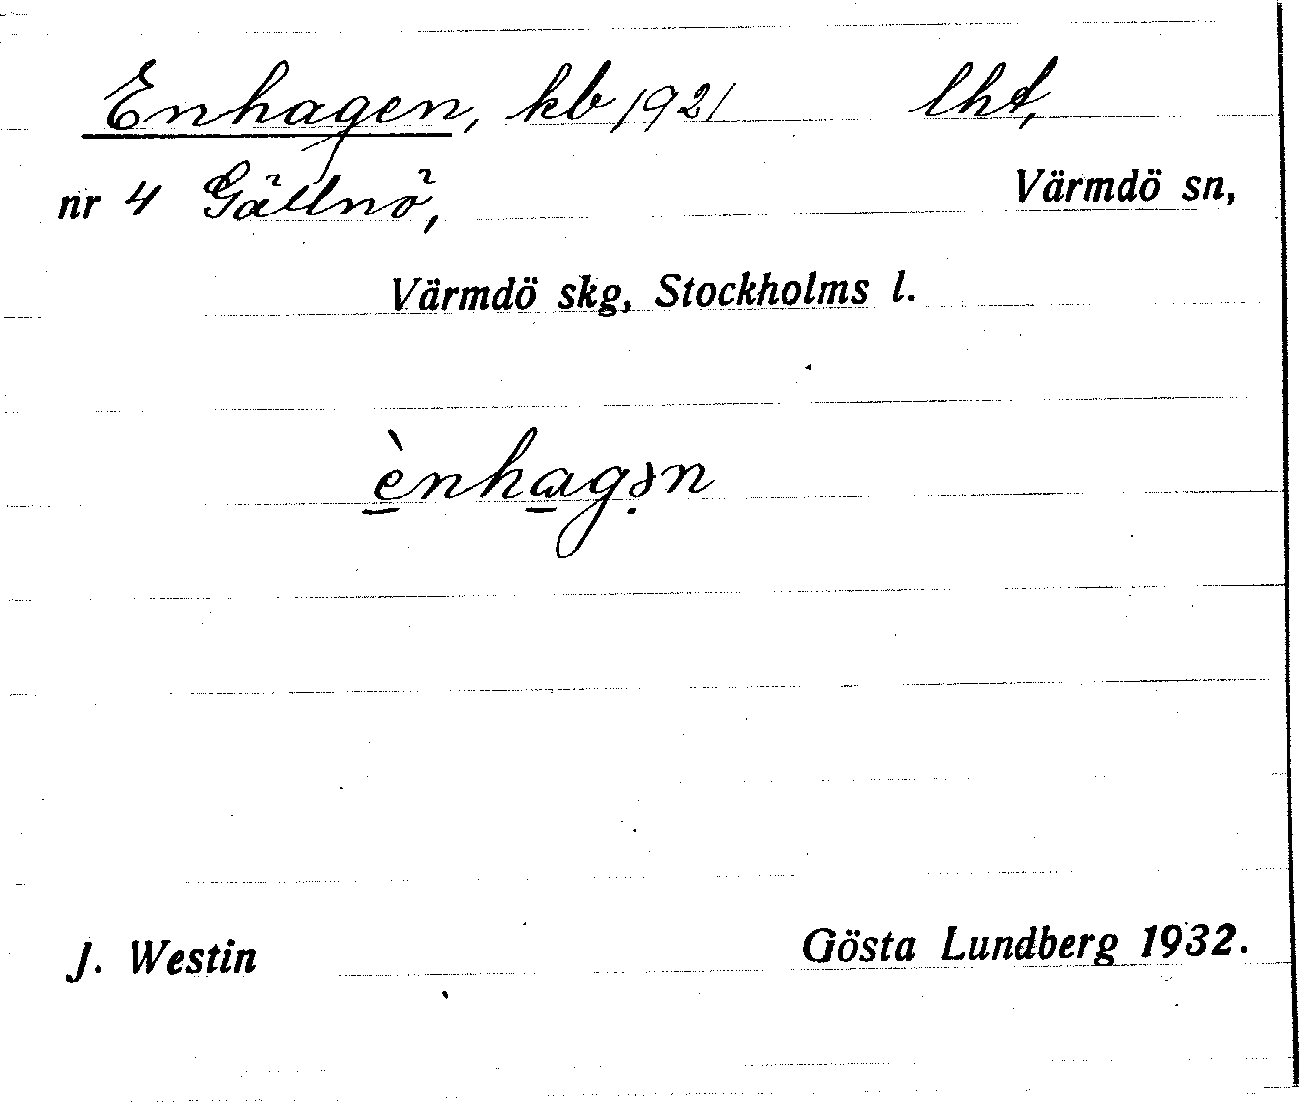 Enhagen, kb 1921 lht,
nr 4 Gällnö, Värmdö sn,
Värmdö skg, Stockholms l.
è̱nha̱gə̣n
J. Westin Gösta Lundberg 1932.